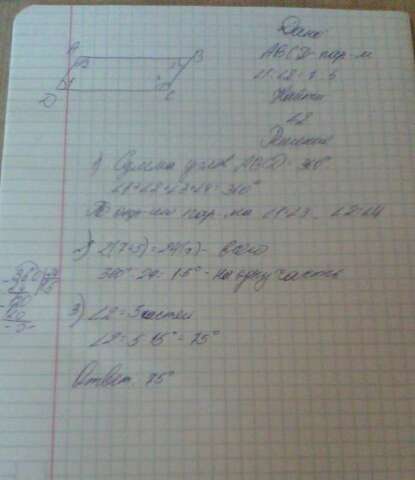 A B
D C
Дано
ABCD - пар-м
∠1:∠2 = 7:5
Найти
∠2
Решение
1) Сумма углов ABCD = 360°
∠1+∠2+∠3+∠4=360°
По пар-ма ∠1=∠3, ∠2=∠4
2) 2(7+5)=24(ч) - всего
360°:24=15° - на одну часть
3) ∠2 = 5 частей
∠2 = 5·15° = 75°
Ответ 75°